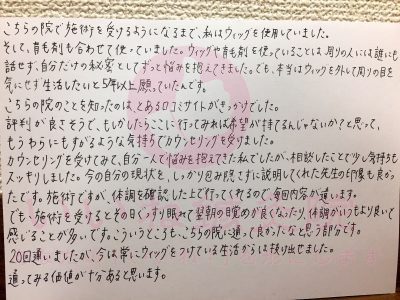 こちらの院で施術を受けるようになるまで、私はウィッグを使用していました。
そして、育毛剤も合わせて使っていました。ウィッグや育毛剤を使っていることは周りの人には誰にも
話せず、自分だけの秘密としてずっと悩みを抱えてきました。でも、本当はウィッグを外して周りの目を
気にせず生活したいと5年以上願っていたんです。
こちらの院のことを知ったのは、とある口コミサイトがきっかけでした。
評判が良さそうで、もしかしたらここに行ってみれば希望が持てるんじゃないか?と思って、
もうわらにもすがるような気持ちでカウンセリングを受けました。
カウンセリングを受けてみて、自分一人で悩みを抱えてきた私でしたが、相談したことで少し気持ちも
スッキリしました。今の自分の現状を、しっかり包み隠さずに説明してくれた先生の印象も良かっ
たです。施術ですが、体調を確認した上で行ってくれるので、毎回内容が違います。
でも、施術を受けるとその日ぐっすり眠れて翌朝の目覚めが良くなったり、体調がいつもより良いと
感じることが多いです。こういうところも、こちらの院に通って良かったなと思う部分です。
20回通いましたが、今は常にウィッグをつけている生活からは抜け出せました。
通ってみる価値が十分あると思います。